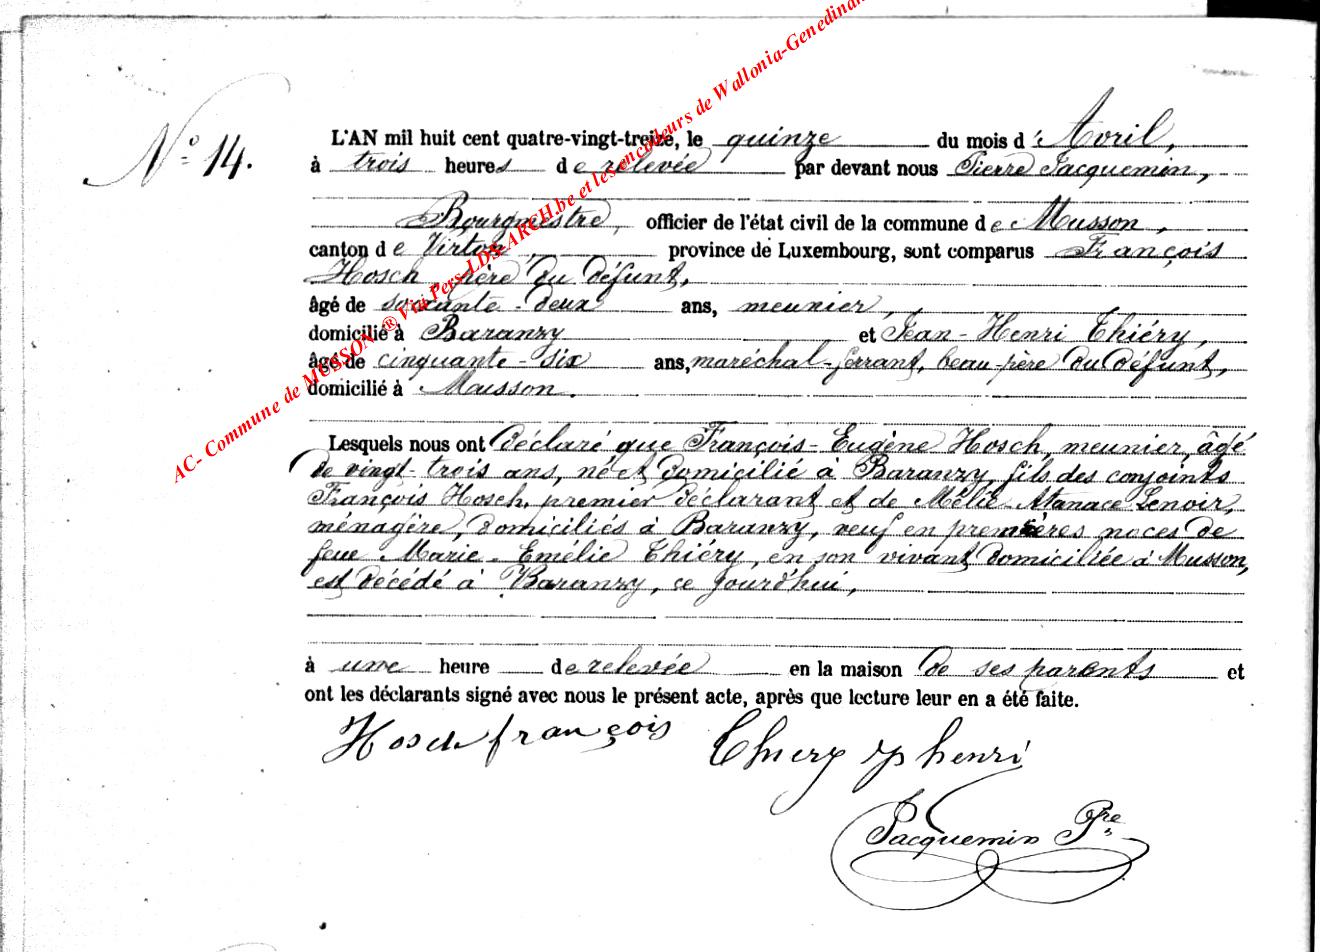 AC- Commune de MUSSON ® Via Pers-LDS-ARCH.be et les encodeurs de Wallonia-Genedinan
Nº 14.
L'AN mil huit cent quatre-vingt-treize, le quinze du mois d'Avril,
à trois heures de relevée par devant nous Pierre Jacquemin,
Bourgmestre, officier de l'état civil de la commune de Musson,
canton de Virton, province de Luxembourg, sont comparus François
Hosch, père du défunt,
âgé de soixante-deux ans, meunier,
domicilié à Baranzy et Jean-Henri Thiéry,
âgé de cinquante-six ans, maréchal-ferrant, beau-père du défunt,
domicilié à Musson.
Lesquels nous ont déclaré que François-Eugène Hosch, meunier, âgé
de vingt-trois ans, né et domicilié à Baranzy, fils des conjoints
François Hosch, premier déclarant et de Mélie-Atanace Lenoir,
ménagère, domiciliés à Baranzy, veuf en premières noces de
feue Marie-Emélie Thiéry, en son vivant domiciliée à Musson,
est décédé à Baranzy, ce jourd'hui,
à une heure de relevée en la maison de ses parents et
ont les déclarants signé avec nous le présent acte, après que lecture leur en a été faite.
Hosch françois Thiery henri
Jacquemin Pre